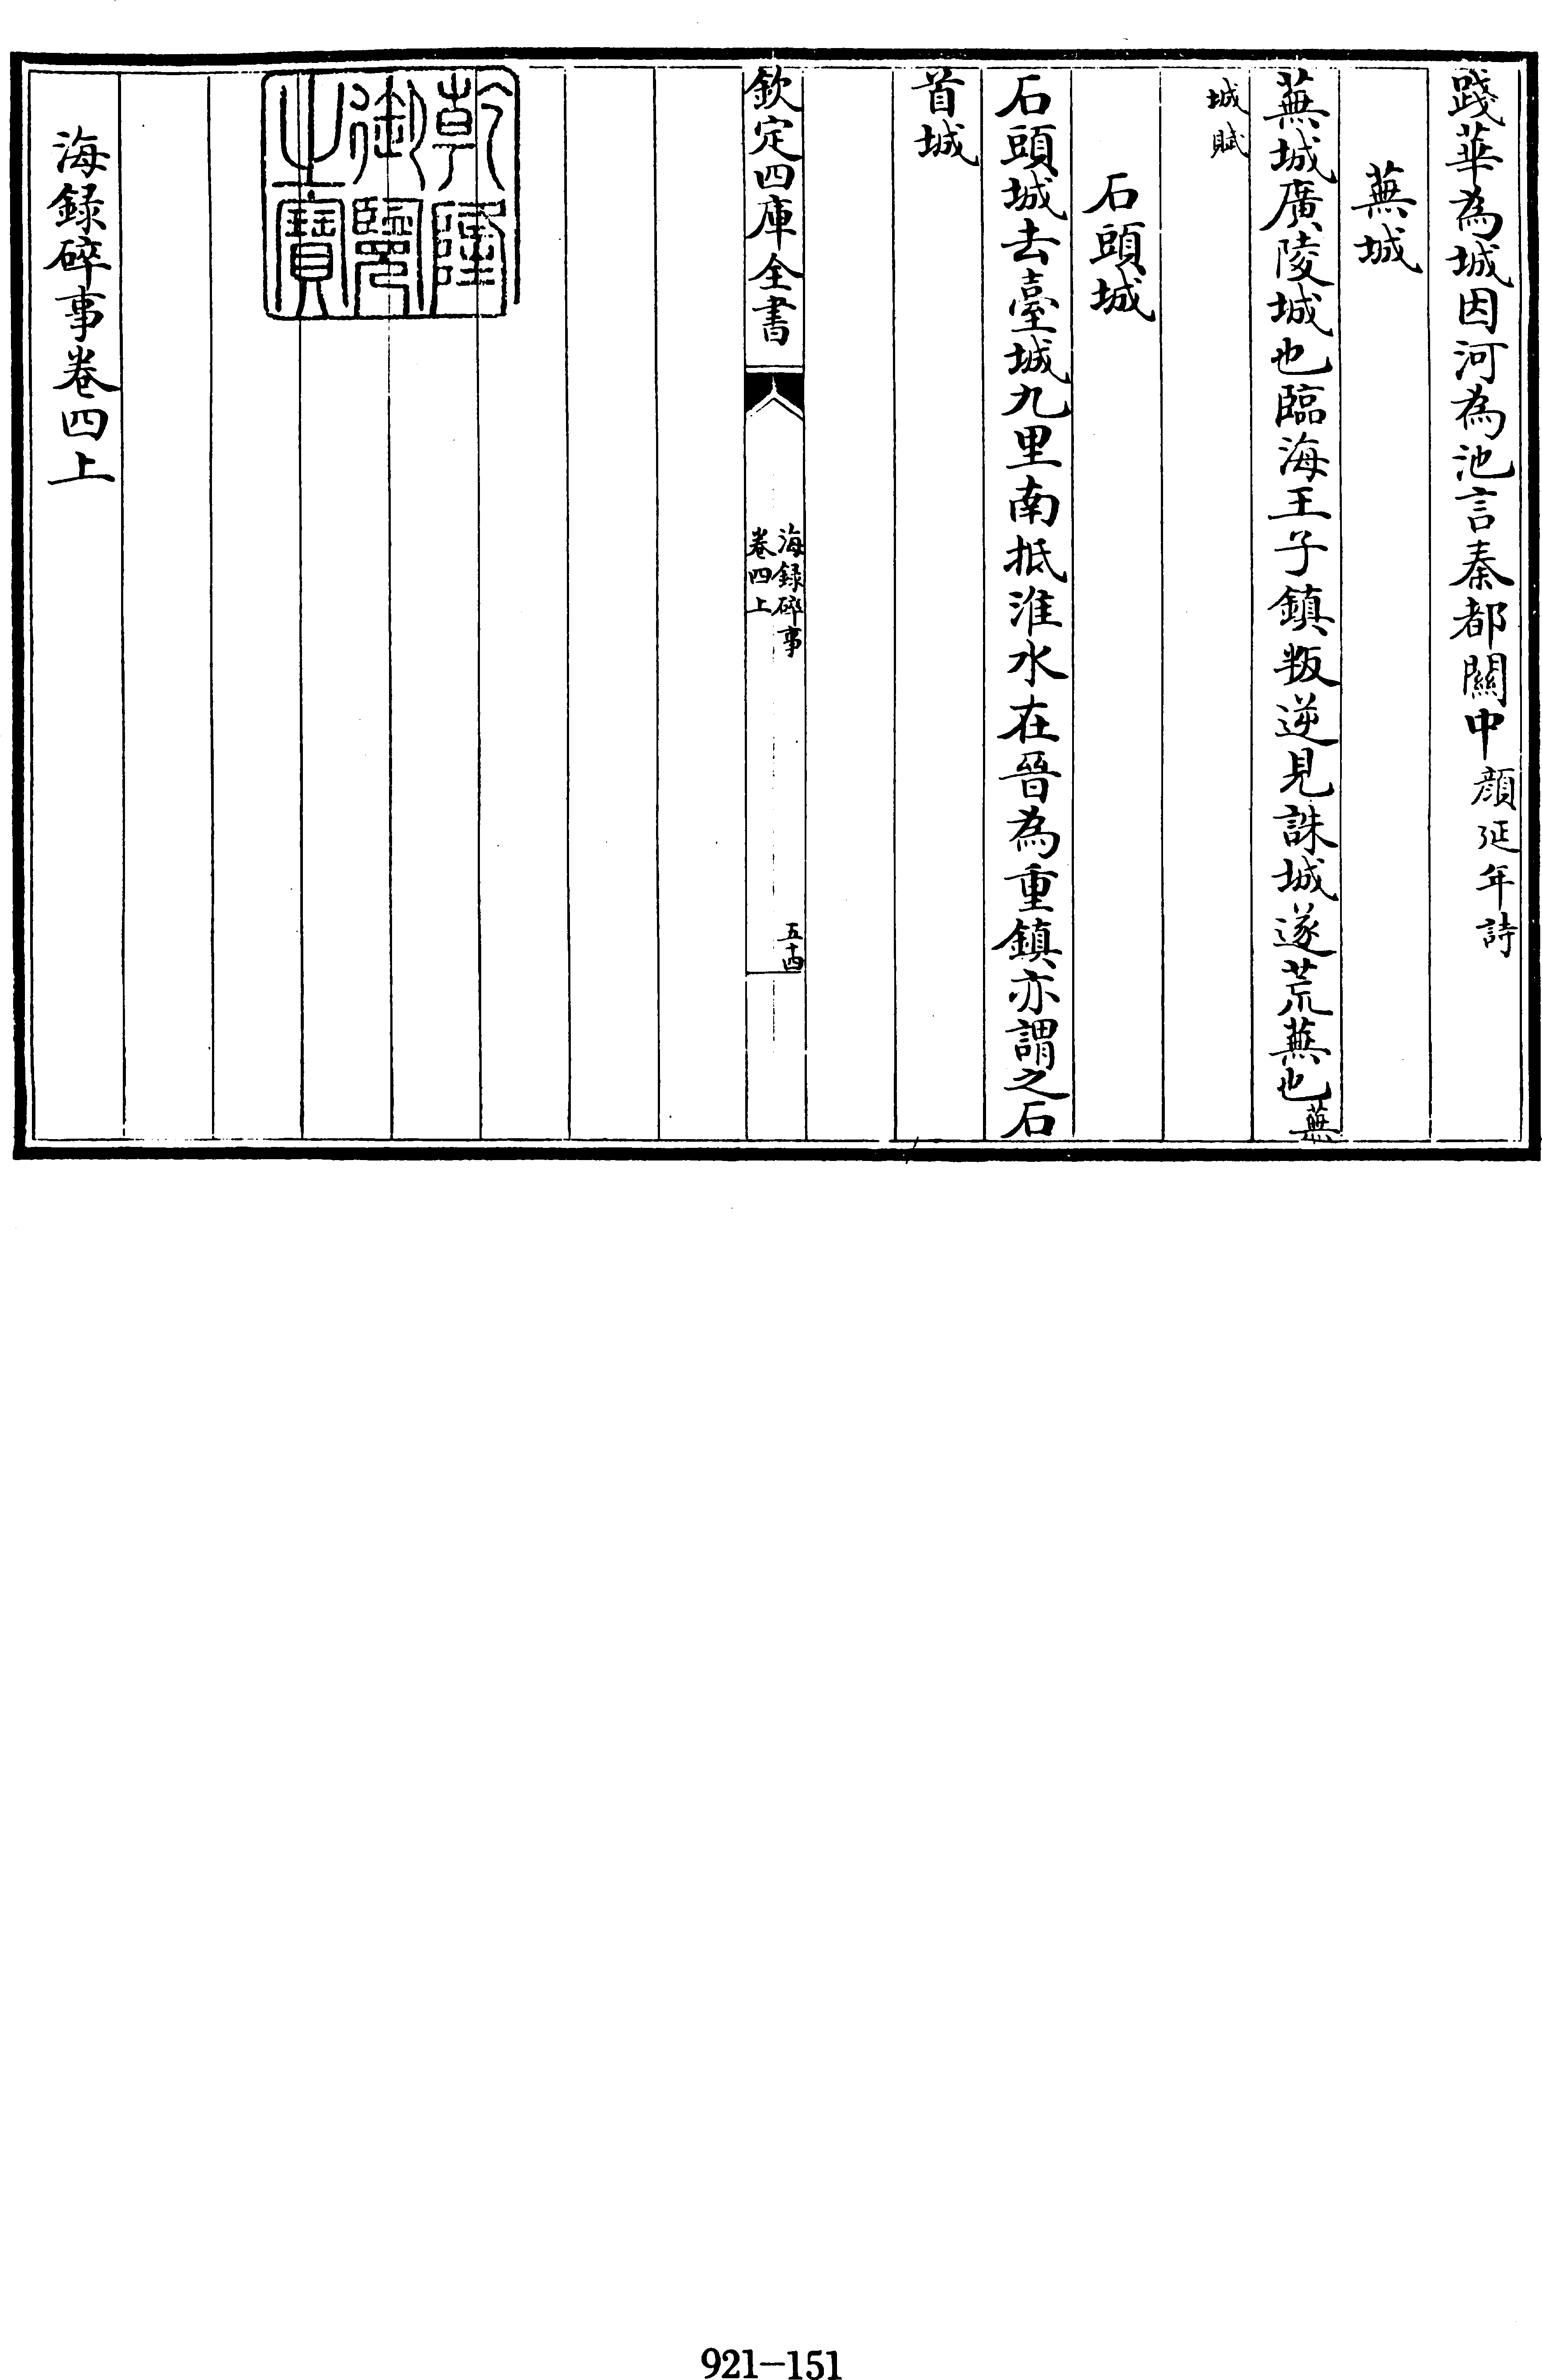 踐華為城因河為池言秦都關中顔延年詩
蕪城
蕪城廣陵城也臨海王子鎮叛逆見誅城遂荒蕪也蕪
城賦
石頭城
石頭城去臺城九里南抵淮水在晉為重鎮亦謂之石
首城
欽定四庫全書
海録碎事
卷四上
五十四
乾隆
御覽
之寶
海録碎事卷四上
921-151